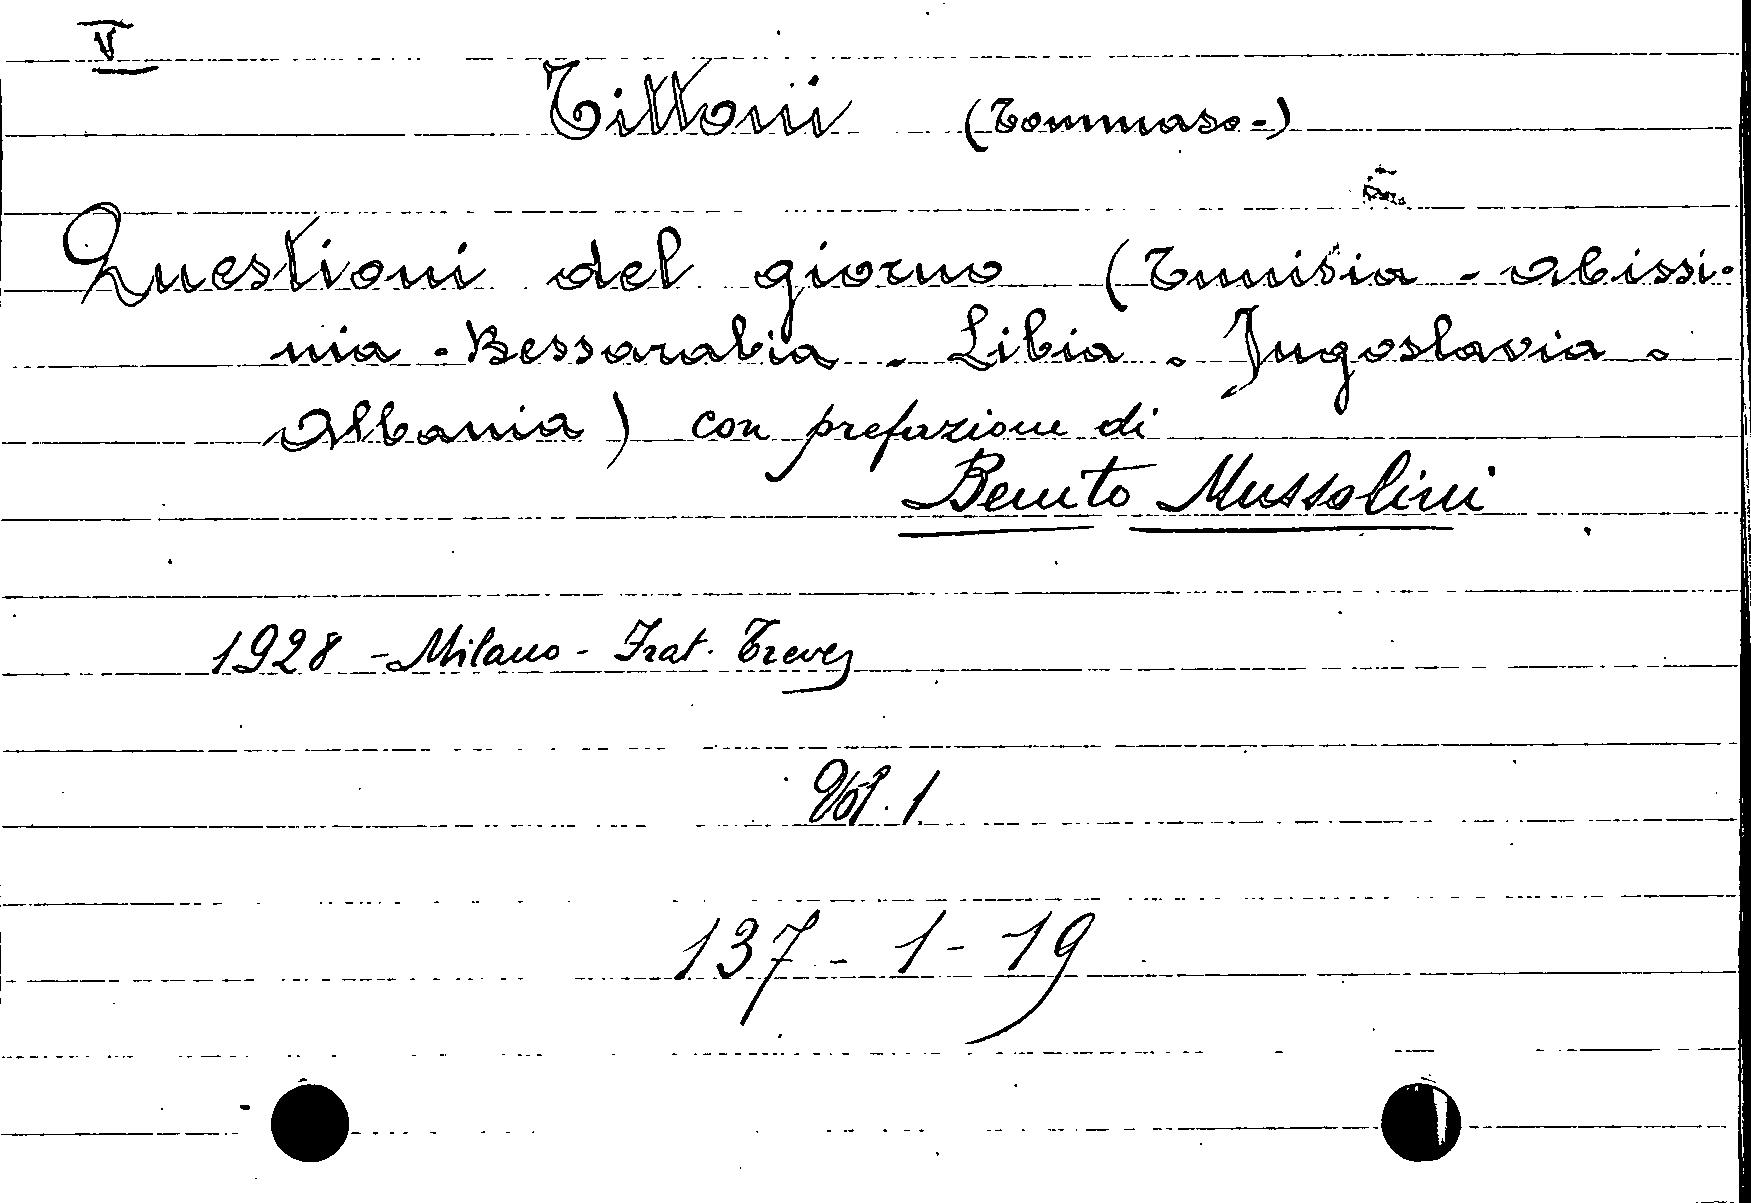 V
Tittoni (Tommaso-)
Questioni del giorno (Tunisia - Abissi-
nia - Bessarabia - Libia - Jugoslavia -
Albania) con prefazione di
Benito Mussolini
1928 - Milano - Frat. Treves
Vol. 1
137 - 1 - 19